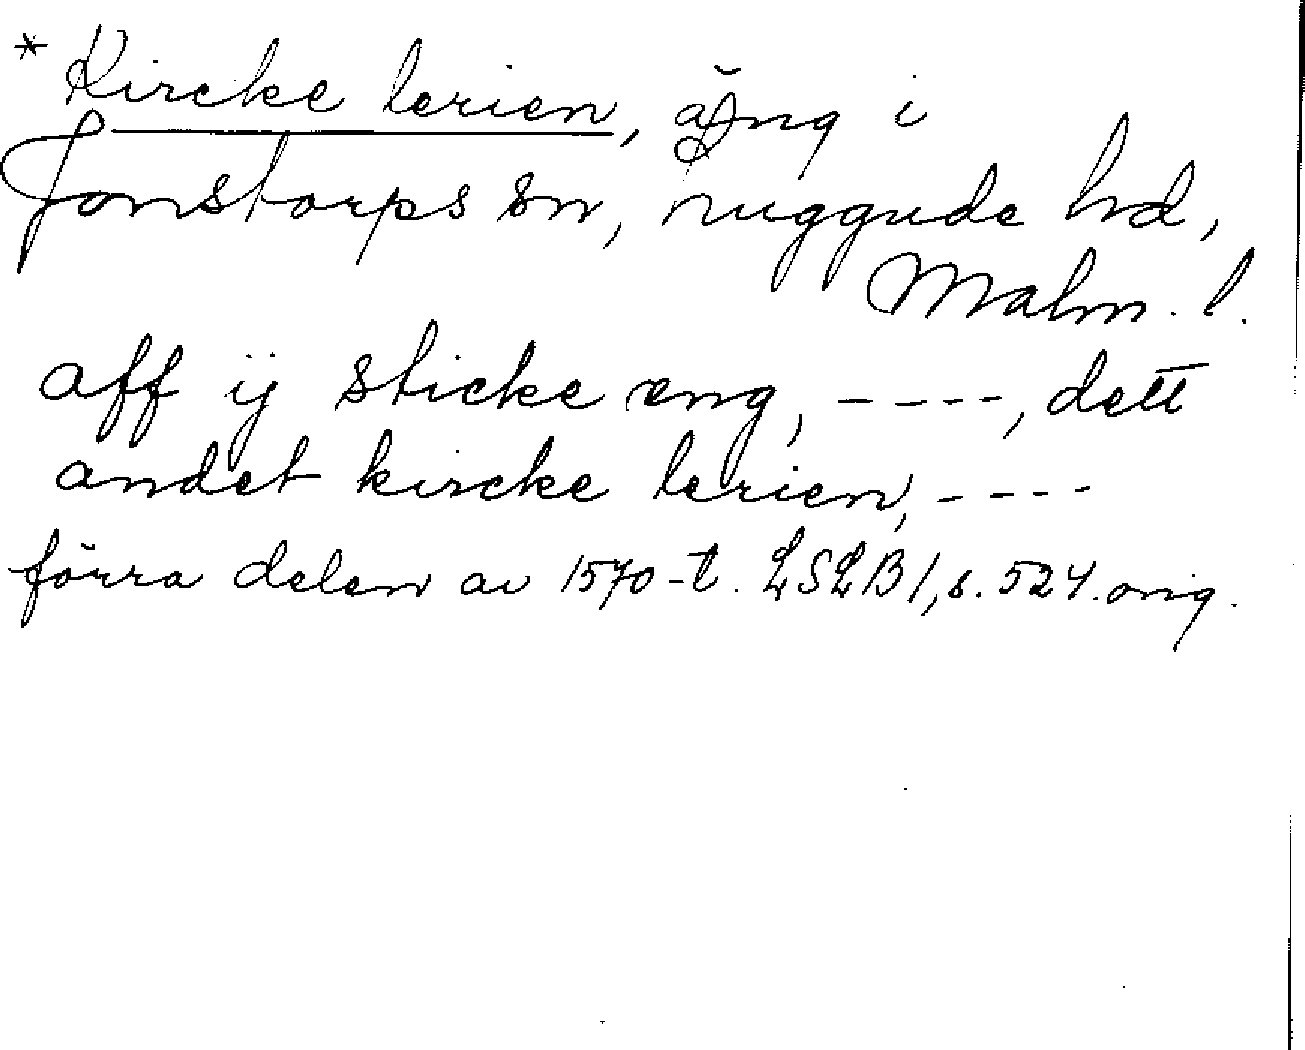 * Kircke lerien, äng i
Jonstorps sn, Luggude hd,
Malm. l.
aff ij sticke eng, ----, dett
andet kircke lerien, ----
förra delen av 1570-t. LSLB 1, s. 524. orig.